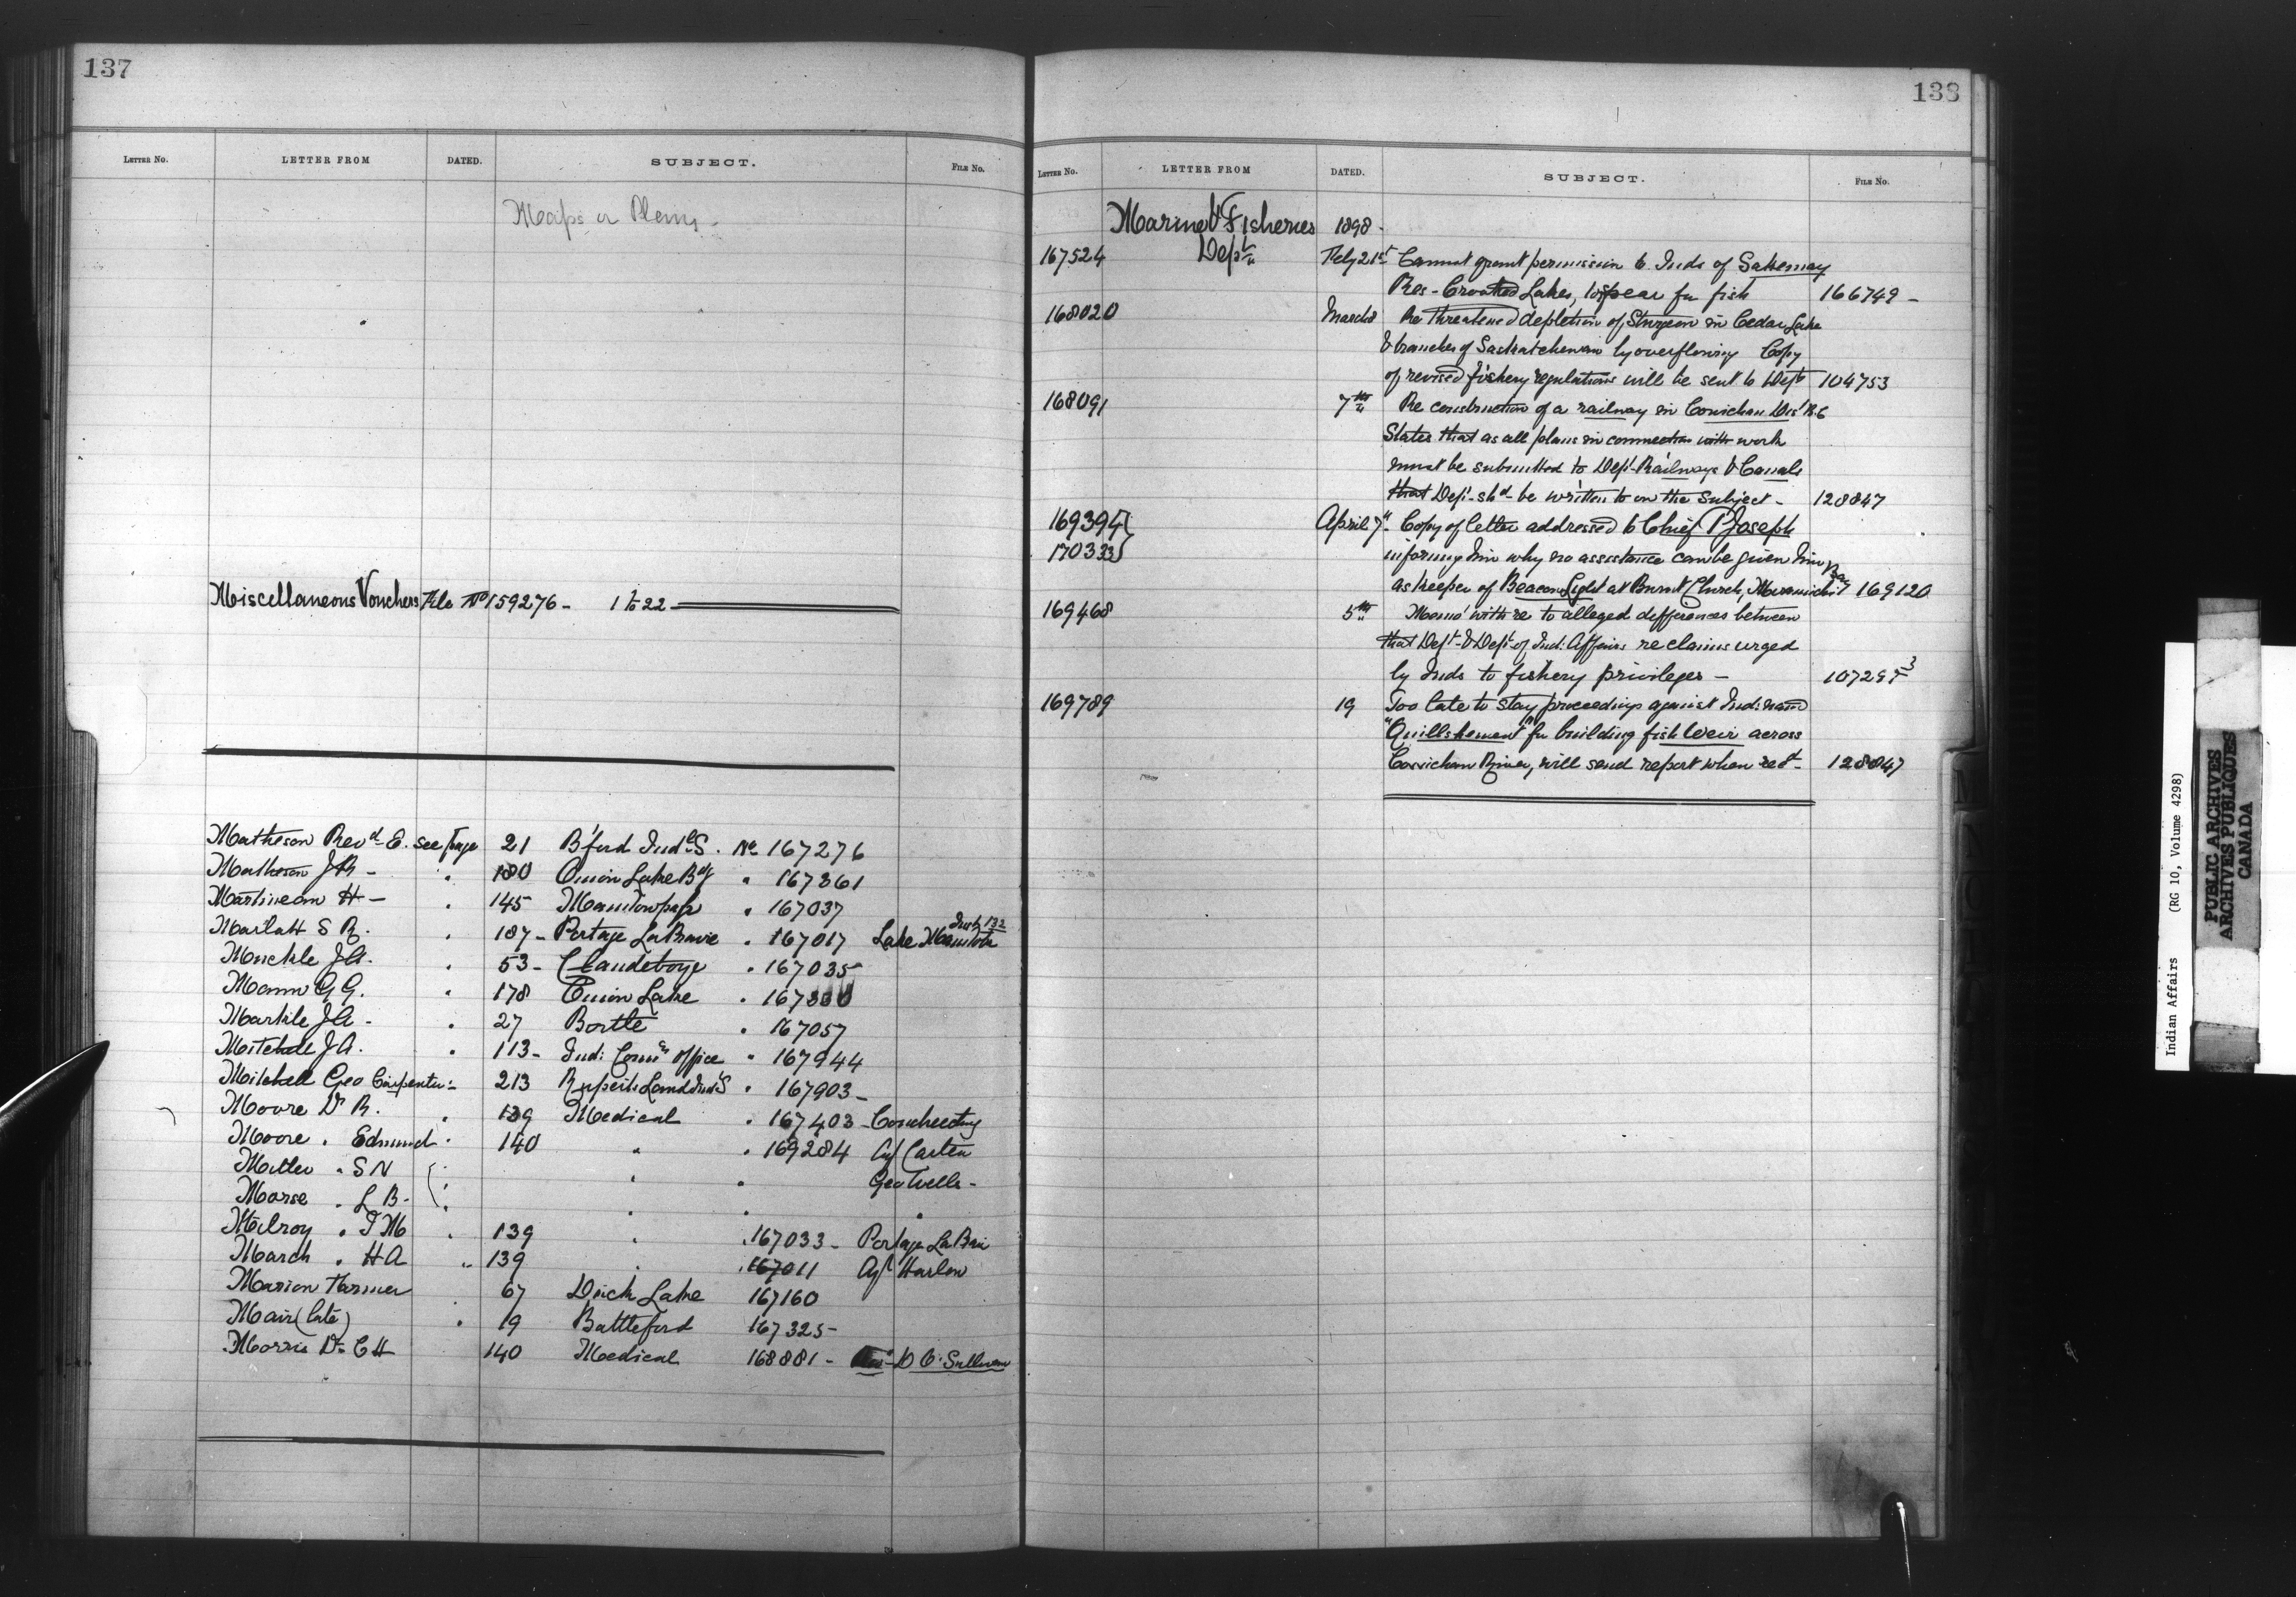 137
LETTER NO. LETTER FROM DATED. SUBJECT. FILE NO.
Maps or Plans -
Miscellaneous Vouchers File No 159276 - 1 to 22
Matheson Revd E. See page 21 B'ford Indl S. No 167276
Matheson J R - " 180 Onion Lake Bdg " 167361
Martineau H - " 145 Manitowpah " 167037
Marlatt S R. " 187 - Portage La Prairie " 167017 Lake Manitoba Insp 132
Muckle J A. " 53 - Clandeboye " 167035
Mann G G. " 178 Onion Lake " 167300
Markle J A - " 27 Birtle " 167057
Mitchell J A. " 113 - Ind: Comrs office " 167944
Mitchell Geo Carpenter - 213 Ruperts Land Indl S " 167903 -
Moore Dr R. " 139 Medical " 167403 -
Moore " Edmund " 140 " " 169284 Agt Carter
" S N " " Geo Wells -
Morse " L B - " " "
Milroy " T M " 139 " " 167033 - Portage La Prai
March " H A " 139 " " 167011 Agt Harlow
Marion Farmer 67 Duck Lake 167160
Mair (late) " 19 Battleford 167325 -
Morris Dr C H 140 Medical 168881 - D O'Sullivan
138
LETTER NO. LETTER FROM DATED. SUBJECT. FILE NO.
Marine & Fisheries 1898 -
167524 Dept Feby 21st Cannot grant permission to Inds of Sakemay
Res - Crooked Lakes, to spear for fish 166749 -
168020 March 8 Re threatened depletion of Sturgeon in Cedar Lake
& branches of Saskatchewan by overflowing Copy
of revised fishery regulations will be sent to Dept 104753
168091 7th " Re construction of a railway in Cowichan Dist B.C
States that as all plans in connection with work
must be submitted to Dept Railways & Canals
that Dept - shd be written to on the subject - 128847
169394 } April 7" Copy of letter addressed to Chief P Joseph
170333 } informing him why no assistance can be given him
as keeper of Beacon Light at Burnt Church, Miramichi Bay 169120
169468 5th " Memo with re to alleged differences between
that Dept & Dept of Ind: Affairs re claims urged
by Inds to fishery privileges - 107297 3
169789 19 Too late to stay proceedings against Ind: named
"Quillshemen" for building fish Weir across
Cowichan River, will send report when recd - 128847
Indian Affairs (RG 10, Volume 4298)
PUBLIC ARCHIVES
ARCHIVES PUBLIQUES
CANADA